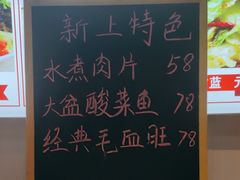 新上特色
水煮肉片 58
大盆酸菜鱼 78
经典毛血旺 78
蓝 元